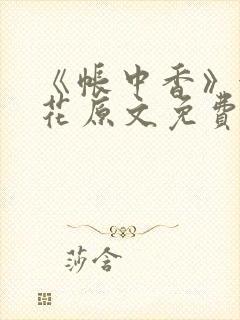 《帐中香》
花原文免费
莎含